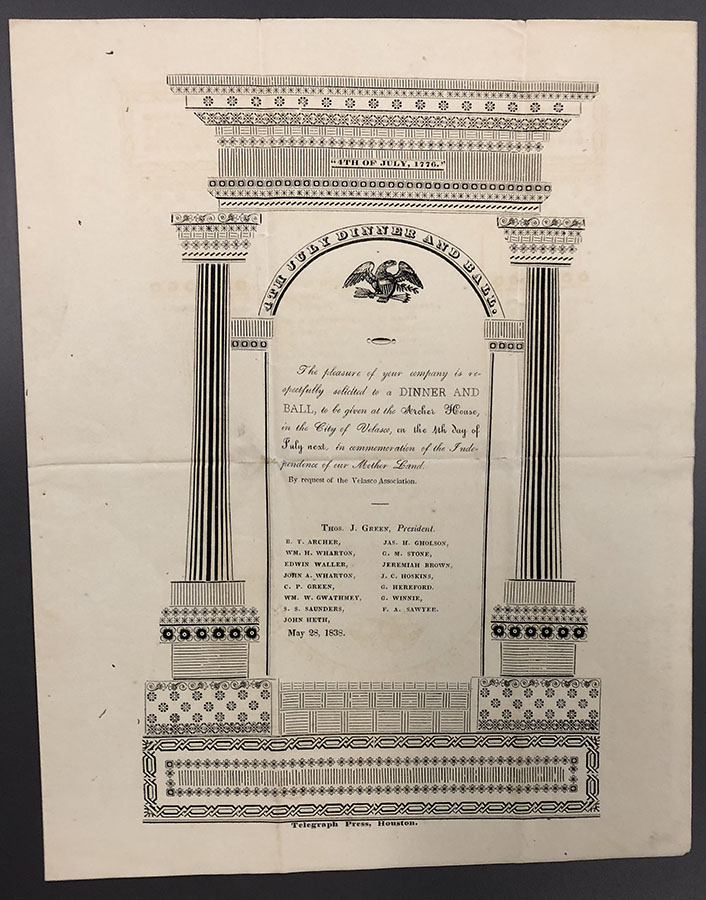 "4TH OF JULY, 1776."
4TH JULY DINNER AND BALL.
The pleasure of your company is re-
spectfully solicited to a DINNER AND
BALL, to be given at the Archer House,
in the City of Velasco, on the 4th day of
July next, in commemoration of the Inde-
pendence of our Mother Land.
By request of the Velasco Association.
THOS. J. GREEN, President.
B. T. ARCHER, JAS. H. GHOLSON,
WM. H. WHARTON, G. M. STONE,
EDWIN WALLER, JEREMIAH BROWN,
JOHN A. WHARTON, J. C. HOSKINS,
C. P. GREEN, G. HEREFORD.
WM. W. GWATHMEY, G. WINNIE,
S. S. SAUNDERS, F. A. SAWYER.
JOHN HETH,
May 28, 1838.
Telegraph Press, Houston.